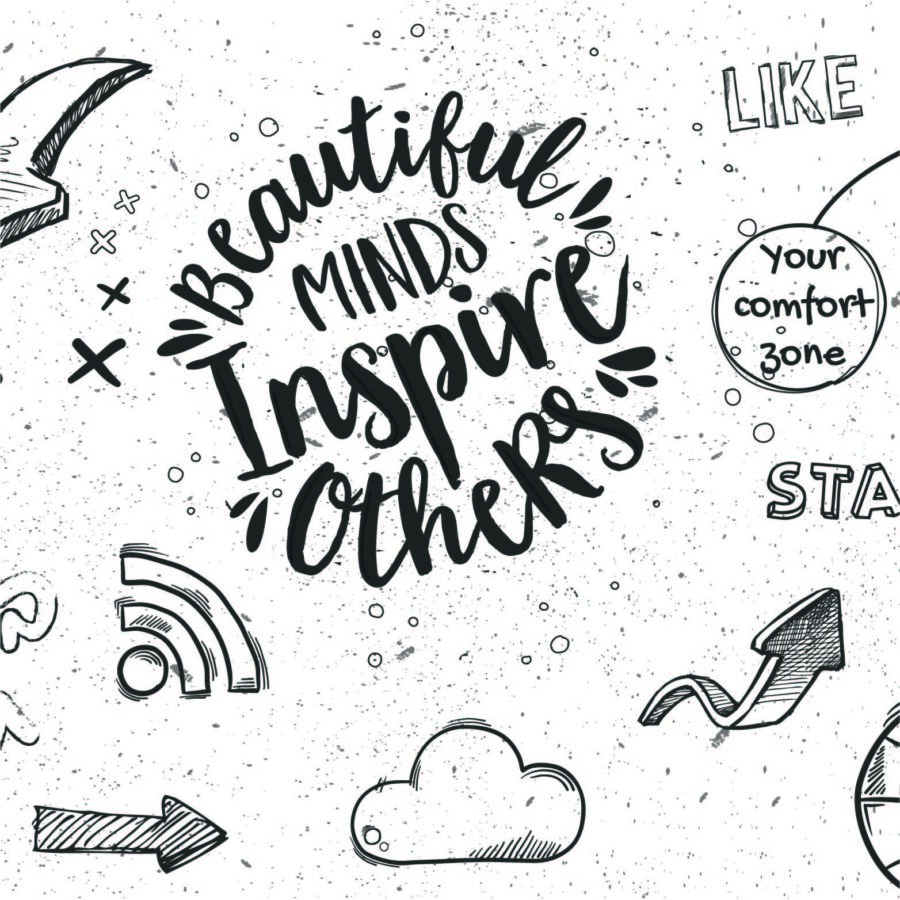 Beautiful
MINDS
Inspire
Others
LIKE
your
comfort
zone
STA
@